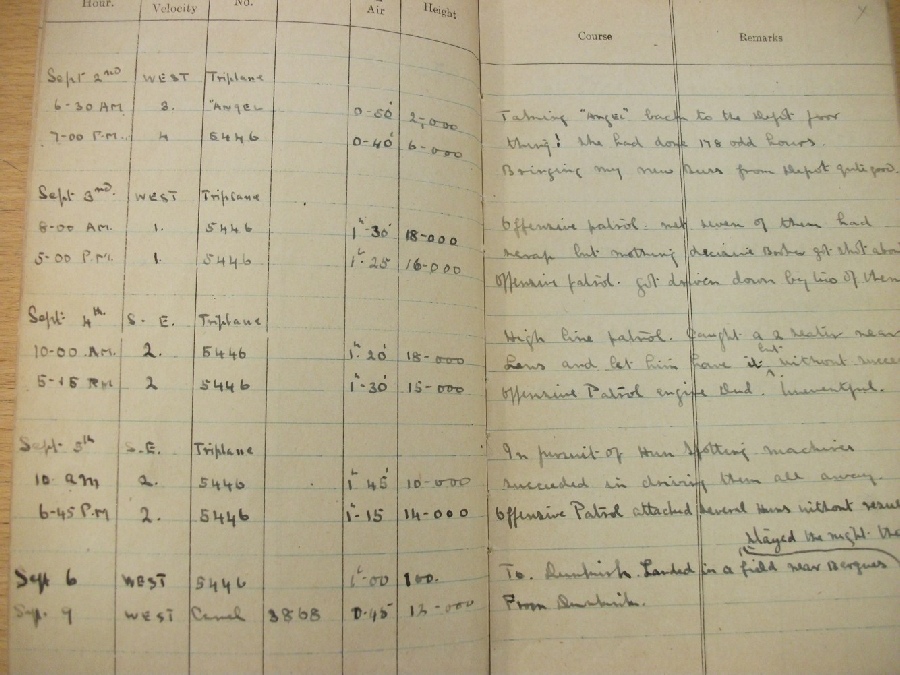 Hour. Velocity No. Air Height Course Remarks
Sept 2nd WEST Triplane
6-30 AM 3. "Angel" 0-50' 2,000 Taking "Angel" back to the depot poor
7-00 P.M. 4 5446 0-40' 6-000 thing! she had done 178 odd hours.
Bringing my new Buss from Depot quite good.
Sept 3rd. WEST Triplane
8-00 AM. 1. 5446 1h-30' 18-000 Offensive patrol. met seven of them had
5-00 P.M. 1. 5446 1h-25 16-000 scrap but nothing decisive Booker got shot about
Offensive patrol. got driven down by two of them
Sept 4th. S-E. Triplane High line patrol. Caught a 2 seater near
10-00 A.M. 2. 5446 1h-20' 18-000 Lens and let him have it but without
5-15 PM 2 5446 1h-30' 15-000 Offensive Patrol engine Dud. Uneventful.
Sept 5th S.E. Triplane In pursuit of Hun Spotting machines
10 am 2. 5446 1h 45' 10-000 succeeded in driving them all away.
6-45 P.M 2. 5446 1h-15 14-000 Offensive Patrol attacked several Huns without
stayed the night
Sept 6 WEST 5446 1h-00 100. To. Dunkirk. Landed in a field near Bergues
Sep. 9 WEST Camel 3868 0-45' 12-000 From Dunkirk.